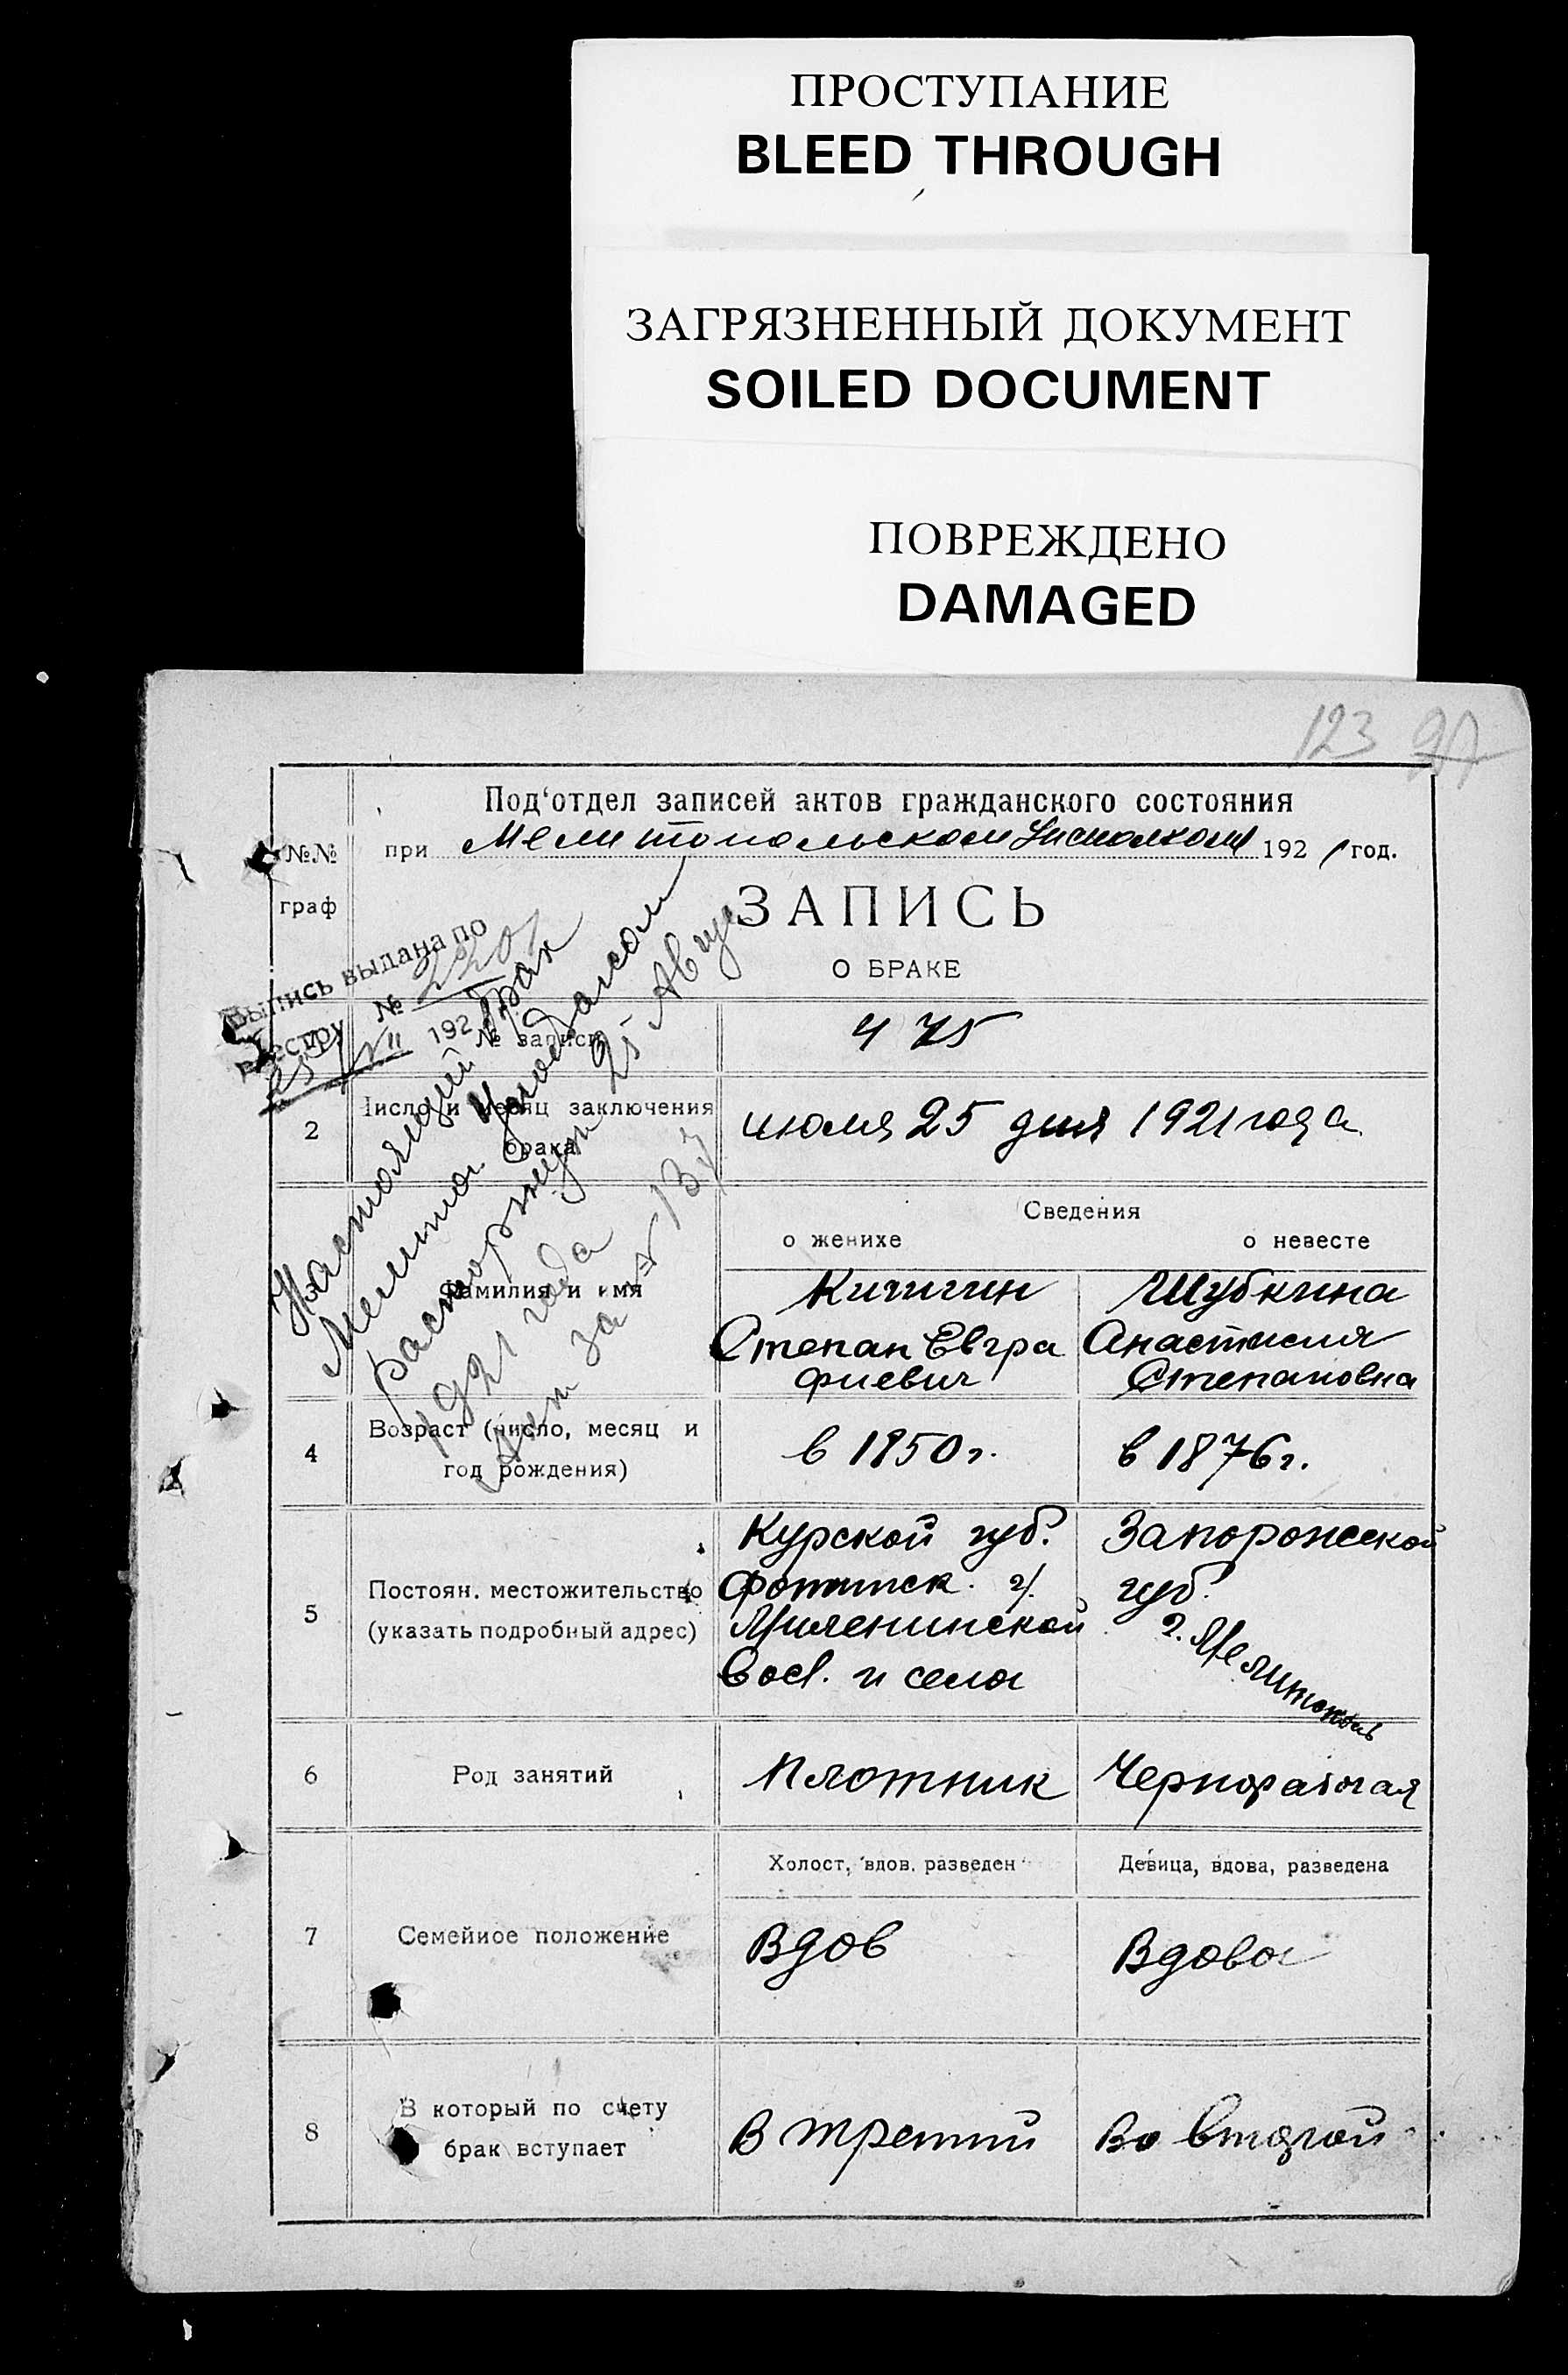 ПРОСТУПАНИЕ
BLEED THROUGH
ЗАГРЯЗНЕННЫЙ ДОКУМЕНТ
SOILED DOCUMENT
ПОВРЕЖДЕНО
DAMAGED
123
Под'отдел записей актов гражданского состояния
№№ граф
при Мелитопольском Исполкоме 1921 год.
ЗАПИСЬ
О БРАКЕ
Выпись выдана по
реестру № 2201
25/VII 192
Настоящий брак
Мелитоп. Уногдансом
расторгнут 25 Авгус
1921 года
Акт за № 137
№ записи
475
2
Число и месяц заключения
брака
июля 25 дня 1921 года
Сведения
о женихе
о невесте
Фамилия и имя
Кичигин
Степан Евгра
фиевич
Шубкина
Анастасия
Степановна
4
Возраст (число, месяц и
год рождения)
в 1850 г.
в 1876 г.
5
Постоян. местожительство
(указать подробный адрес)
Курской губ.
у.
Миленинской
вол. и села
Запорожской
губ.
г. Мелитополь
6
Род занятий
Плотник
Чернорабочая
Холост, вдов, разведен
Девица, вдова, разведена
7
Семейное положение
Вдов
Вдова
8
В который по счету
брак вступает
В третий
Во второй